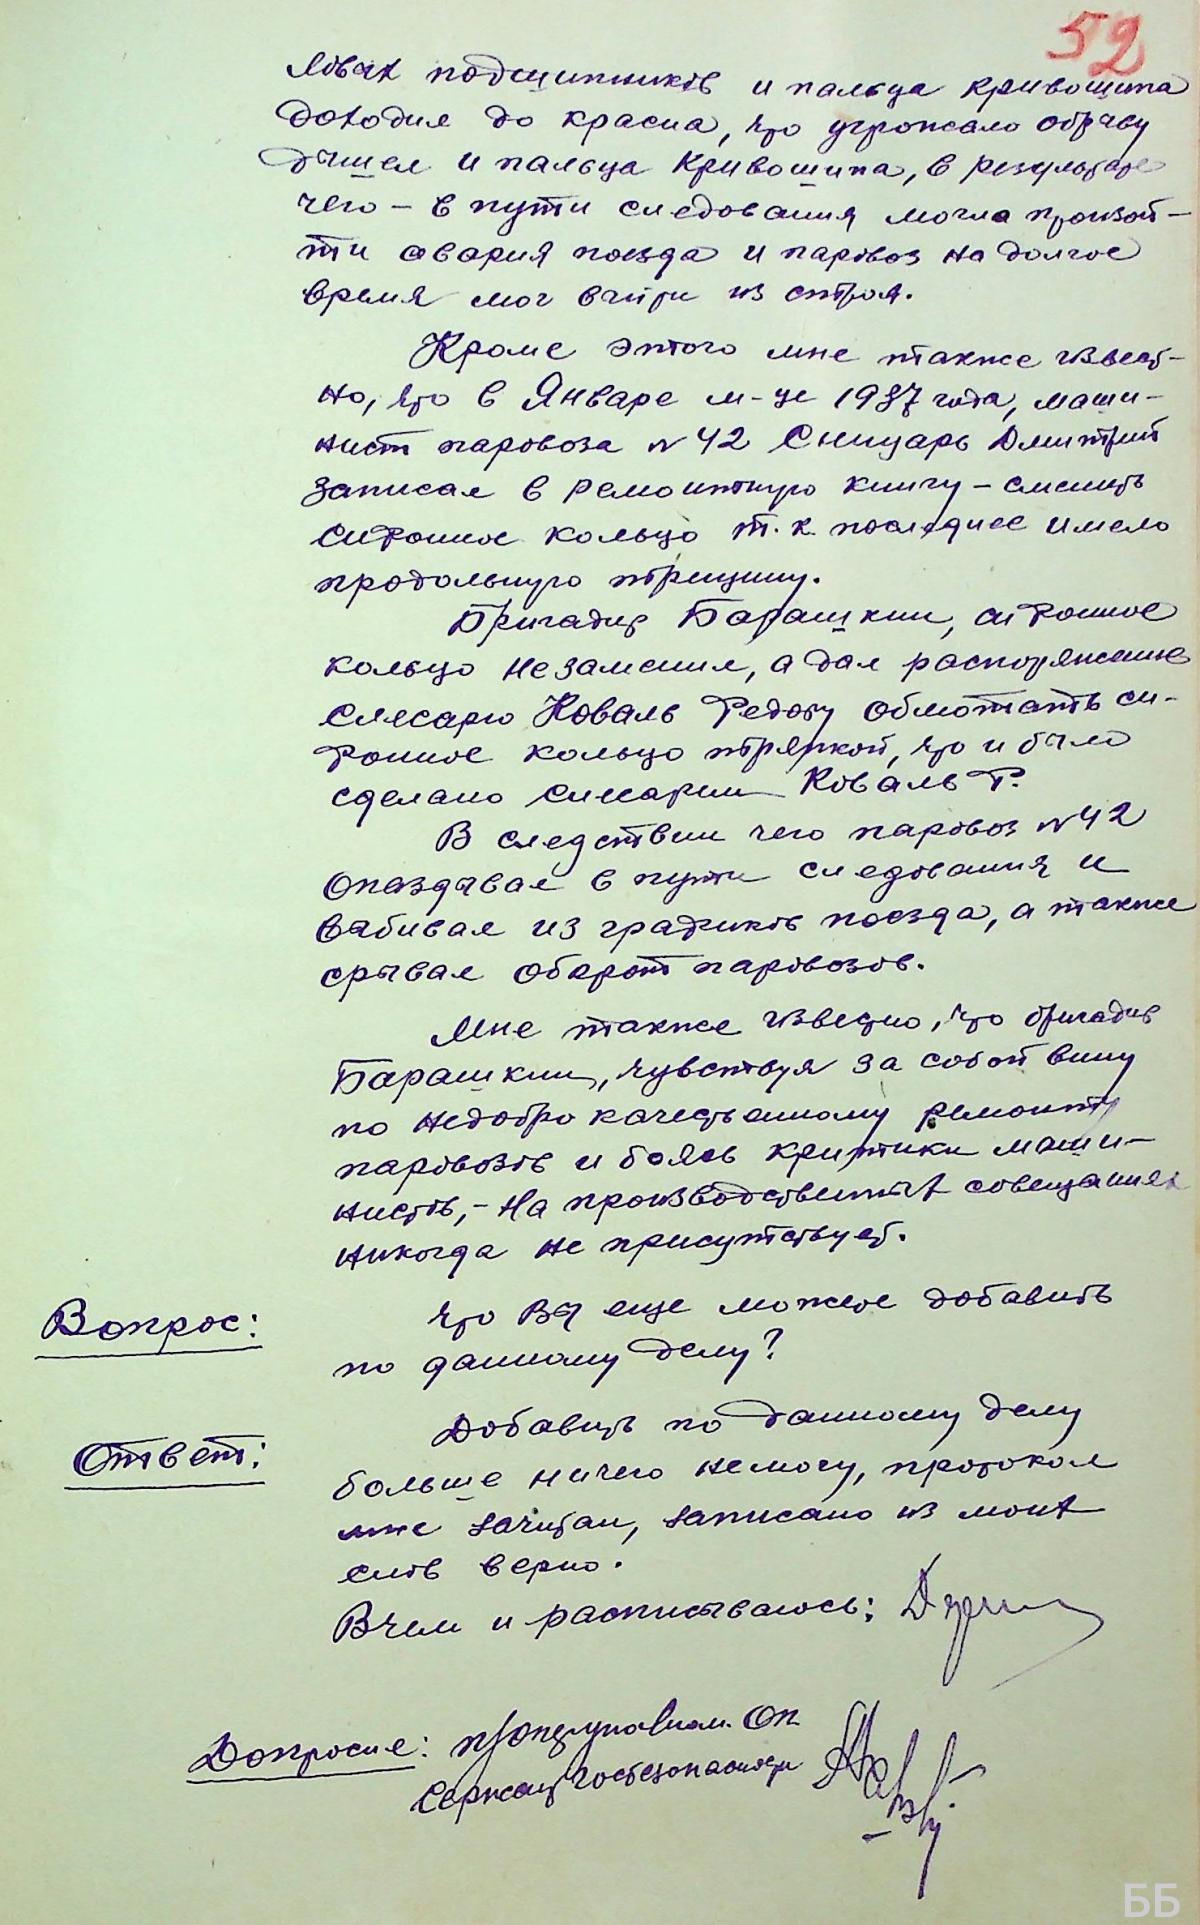 52
ловых подшипников и пальца кривошипа
доходил до красна, что угрожало обрыву
дышел и пальца кривошипа, в результате
чего – в пути следования могла произой-
ти авария поезда и паровоз на долгое
время мог выйти из строя.
Кроме этого мне также извест-
но, что в Январе м-це 1937 года, маши-
нист паровоза №42 Сницарь Дмитрий
записал в ремонтную книгу – сменить
сифонное кольцо т.к. последнее имело
продольную трещину.
Бригадир Барашкин, сифонное
кольцо не заменил, а дал распоряжение
слесарю Коваль Федору обмотать си-
фонное кольцо тряпкой, что и было
сделано слесарем Коваль Ф.
В следствии чего паровоз №42
опаздывал в пути следования и
выбивал из графиков поезда, а также
срывал оборот паровозов.
Мне также известно, что бригадир
Барашкин, чувствуя за собой вину
по недоброкачественному ремонту
паровозов и боясь критики маши-
нистов, – на производственных совещаниях
никогда не присутствует.
Вопрос: Что Вы еще можете добавить
по данному делу?
Ответ: Добавить по данному делу
больше ничего немогу, протокол
мне зачитан, записано из моих
слов верно.
В чем и расписываюсь:
Допросил: Оп
Сержант госбезопасности
ББ